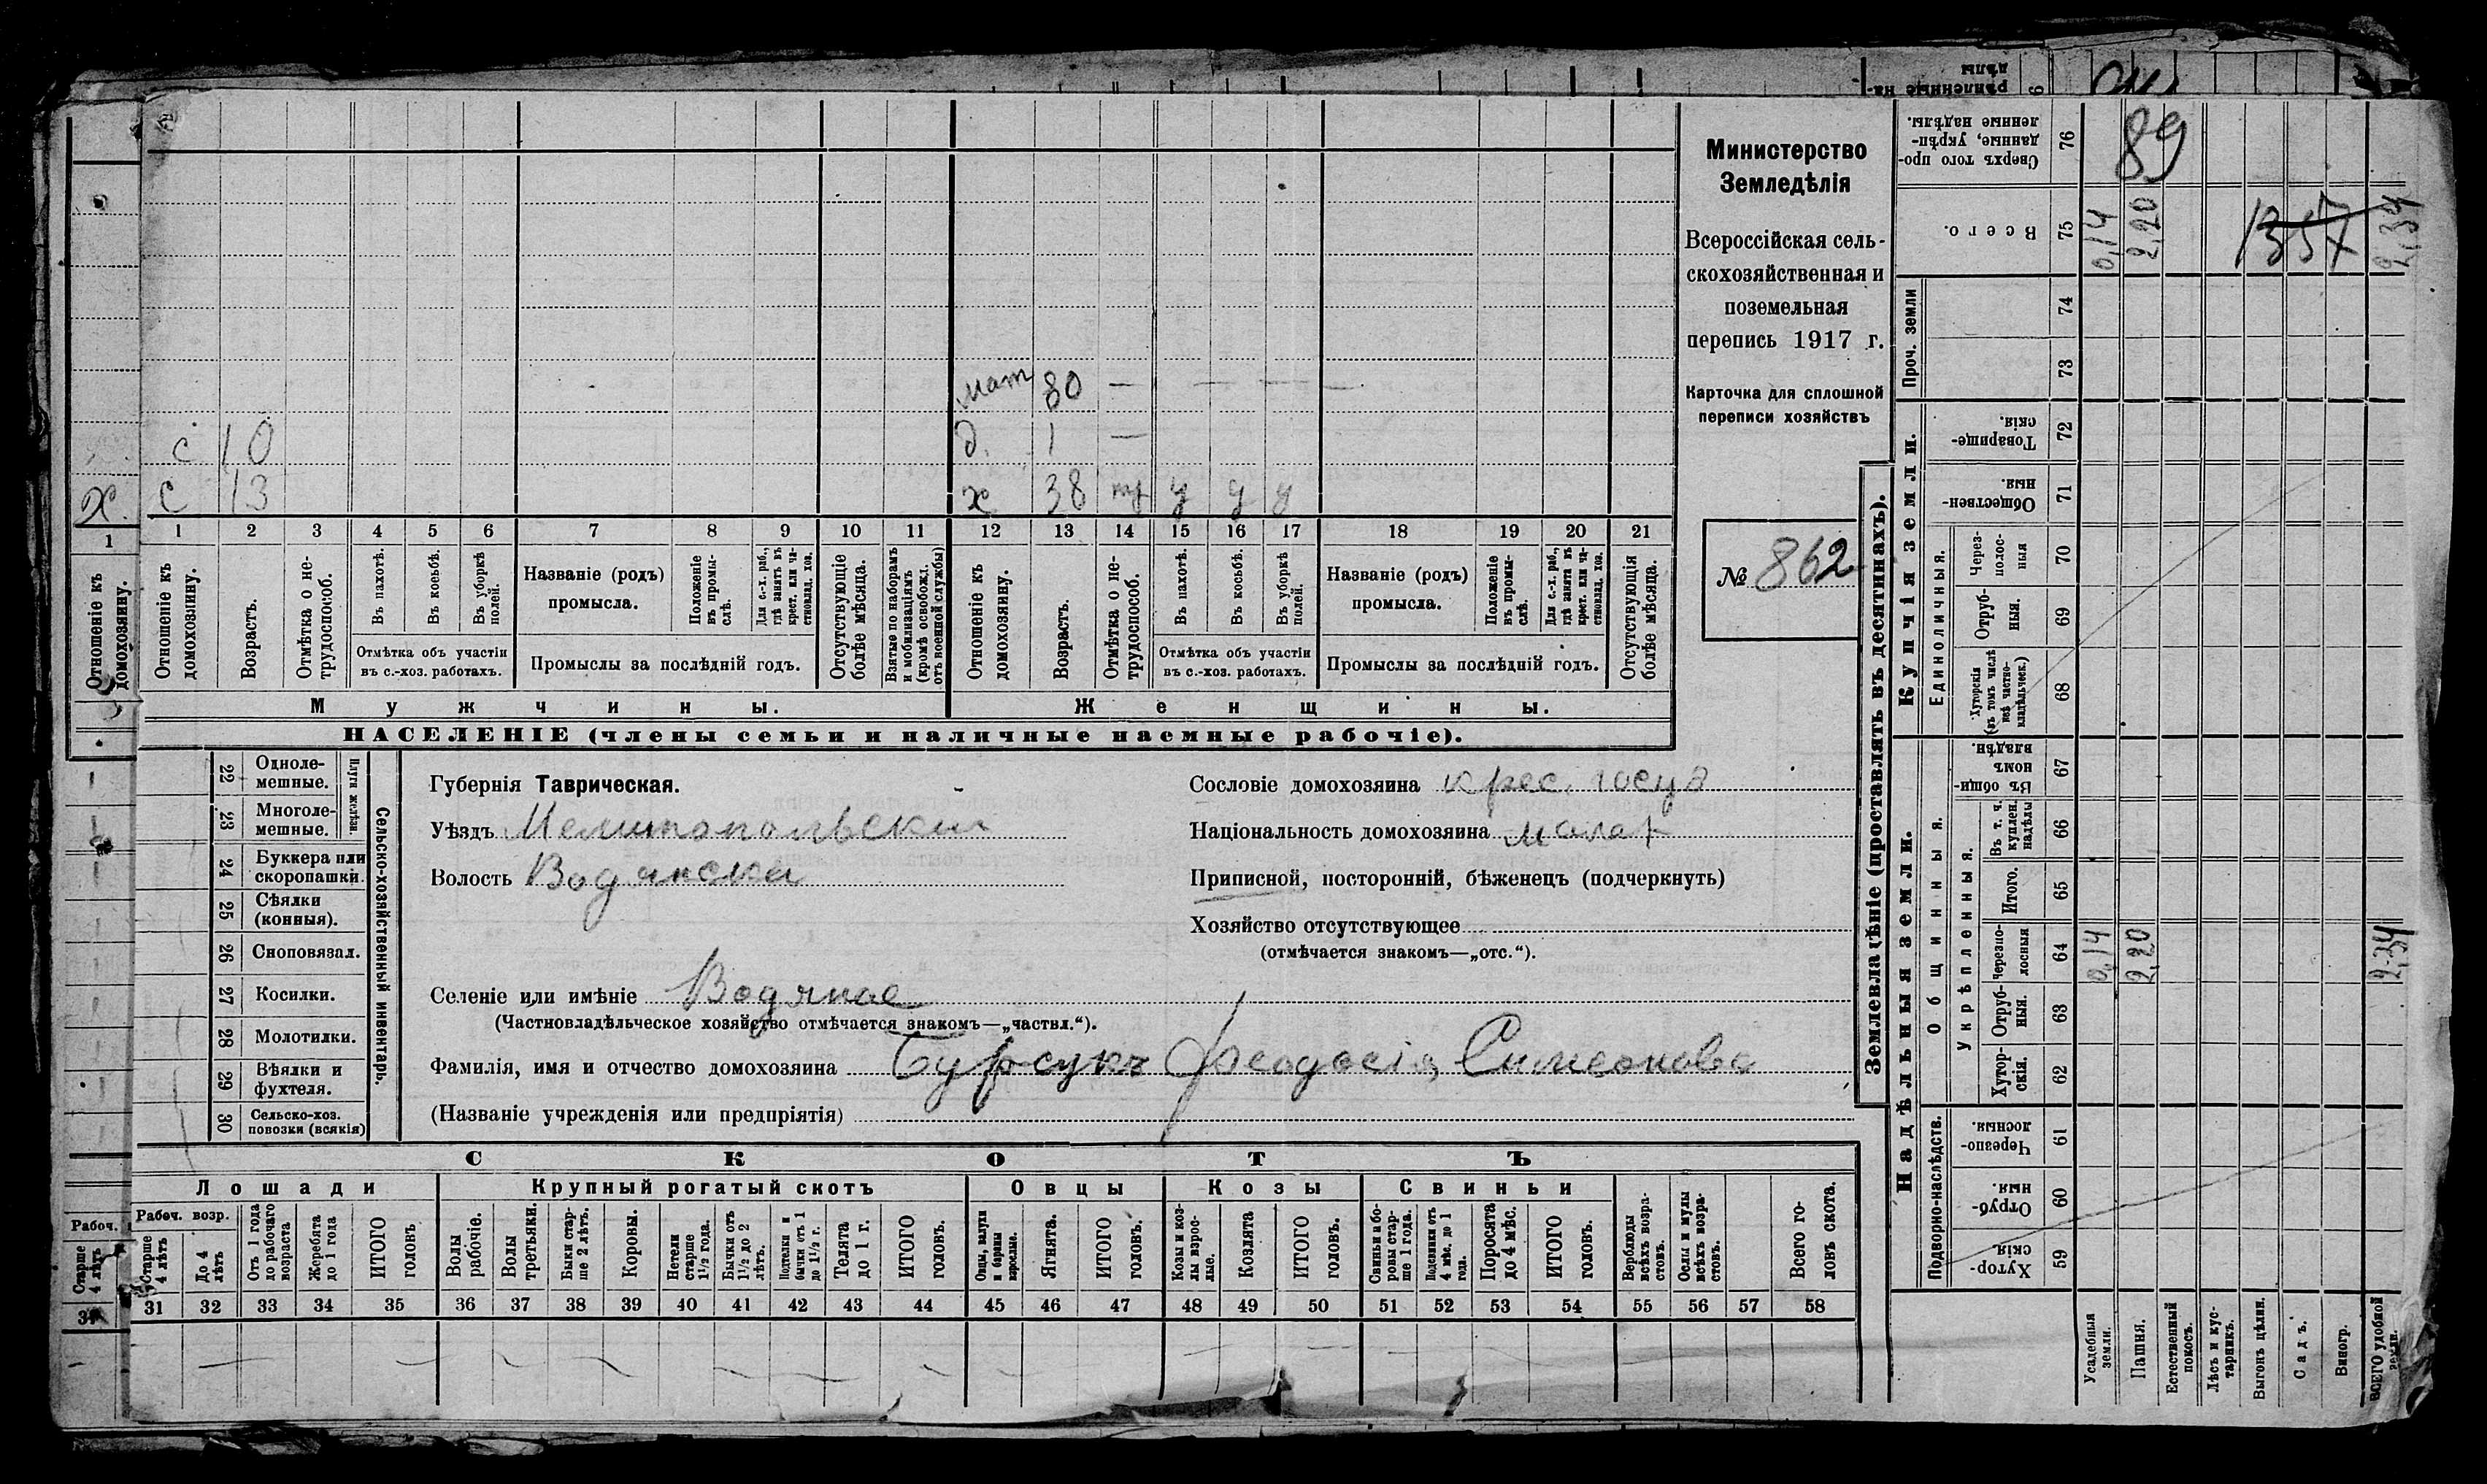 Министерство
Земледѣлія
Всероссійская сель-
скохозяйственная и
поземельная
перепись 1917 г.
Карточка для сплошной
переписи хозяйствъ
№ 862
мат 80 — — — —
с 10 д. 1 —
с 13 х 38 у у у
1 2 3 4 5 6 7 8 9 10 11 12 13 14 15 16 17 18 19 20 21
Отношеніе къ домохозяину.
Возрастъ.
Отмѣтка о не-трудоспособ.
Въ пахотѣ.
Въ косьбѣ.
Въ уборкѣ полей.
Отмѣтка объ участіи
въ с.-хоз. работахъ.
Названіе (родъ)
промысла.
Положеніе въ промы-слѣ.
Для с.-х. раб., гдѣ занятъ въ крест. или ча-стновлад. хоз.
Промыслы за послѣдній годъ.
Отсутствующіе болѣе мѣсяца.
Взятые по наборамъ и мобилизаціямъ (кромѣ освобожд. отъ военной службы)
Отношеніе къ домохозяину.
Возрастъ.
Отмѣтка о не-трудоспособ.
Въ пахотѣ.
Въ косьбѣ.
Въ уборкѣ полей.
Отмѣтка объ участіи
въ с.-хоз. работахъ.
Названіе (родъ)
промысла.
Положеніе въ промы-слѣ.
Для с.-х. раб., гдѣ занята въ крест. или ча-стновлад. хоз.
Промыслы за послѣдній годъ.
Отсутствующія болѣе мѣсяца.
Мужчины. Женщины.
НАСЕЛЕНІЕ (члены семьи и наличные наемные рабочіе).
х.
1
Отношеніе къ домохозяину.
Сельско-хозяйственный инвентарь.
Плуги желѣзн.
22 Одноле-мешные.
23 Многоле-мешные.
24 Буккера или скоропашки.
25 Сѣялки (конныя).
26 Сноповязал.
27 Косилки.
28 Молотилки.
29 Вѣялки и фухтеля.
30 Сельско-хоз. повозки (всякія)
Губернія Таврическая.
Уѣздъ Мелитопольскій
Волость Водянская
Селеніе или имѣніе Водяное
(Частновладѣльческое хозяйство отмѣчается знакомъ—„частвл.“).
Фамилія, имя и отчество домохозяина Бурсукъ Феодосія Симеонова
(Названіе учрежденія или предпріятія)
Сословіе домохозяина крес. госуд
Національность домохозяина малор
Приписной, посторонній, бѣженецъ (подчеркнуть)
Хозяйство отсутствующее
(отмѣчается знакомъ—„отс.“).
СКОТЪ
Лошади Крупный рогатый скотъ Овцы Козы Свиньи
Рабоч. возр.
Старше 4 лѣтъ
До 4 лѣтъ
Отъ 1 года до рабочаго возраста
Жеребята до 1 года
ИТОГО головъ
Волы рабочіе.
Волы третьяки.
Быки стар-ше 2 лѣтъ.
Коровы.
Нетели старше 1½ года.
Бычки отъ 1½ до 2 лѣтъ.
Подтелки и бычки отъ 1 до 1½ г.
Телята до 1 г.
ИТОГО головъ.
Овцы, валухи и бараны взрослые.
Ягнята.
ИТОГО головъ.
Козы и коз-лы взрос-лые.
Козлята
ИТОГО головъ.
Свиньи и бо-ровы стар-ше 1 года.
Подсвинки отъ 4 мѣс. до 1 года.
Поросята до 4 мѣс.
ИТОГО головъ.
Верблюды всѣхъ возра-стовъ.
Ослы и мулы всѣхъ возра-стовъ.
Всего го-ловъ скота.
31 32 33 34 35 36 37 38 39 40 41 42 43 44 45 46 47 48 49 50 51 52 53 54 55 56 57 58
Рабоч.
Старше 4 лѣтъ
Землевладѣніе (проставлять въ десятинахъ).
Надѣльныя земли.
Купчія земли.
Проч. земли
Подворно-наслѣдств.
Общинныя.
Укрѣпленныя.
Единоличныя.
76 Сверхъ того про-данные, укрѣп-ленные надѣлы.
89
75 Всего. 0,14 2,20 1357 2,34
74
73
72 Товарище-скія.
71 Обществен-ныя.
70 Через-полос-ныя
69 Отруб-ныя.
68 Хуторскія (въ томъ числѣ всѣ частно-владѣльческ.)
67 Въ общин-номъ владѣн.
66 Въ т. ч. куплен. надѣлы
65 Итого.
64 Черезпо-лосныя 0,14 2,20 2,34
63 Отруб-ныя.
62 Хутор-скія.
61 Черезпо-лосныя.
60 Отруб-ныя.
59 Хутор-скія
Усадебныя земли.
Пашня.
Естественный покосъ.
Лѣсъ и кус-тарникъ.
Выгонъ цѣлин.
Садъ.
Виногр.
ВСЕГО удобной земли.